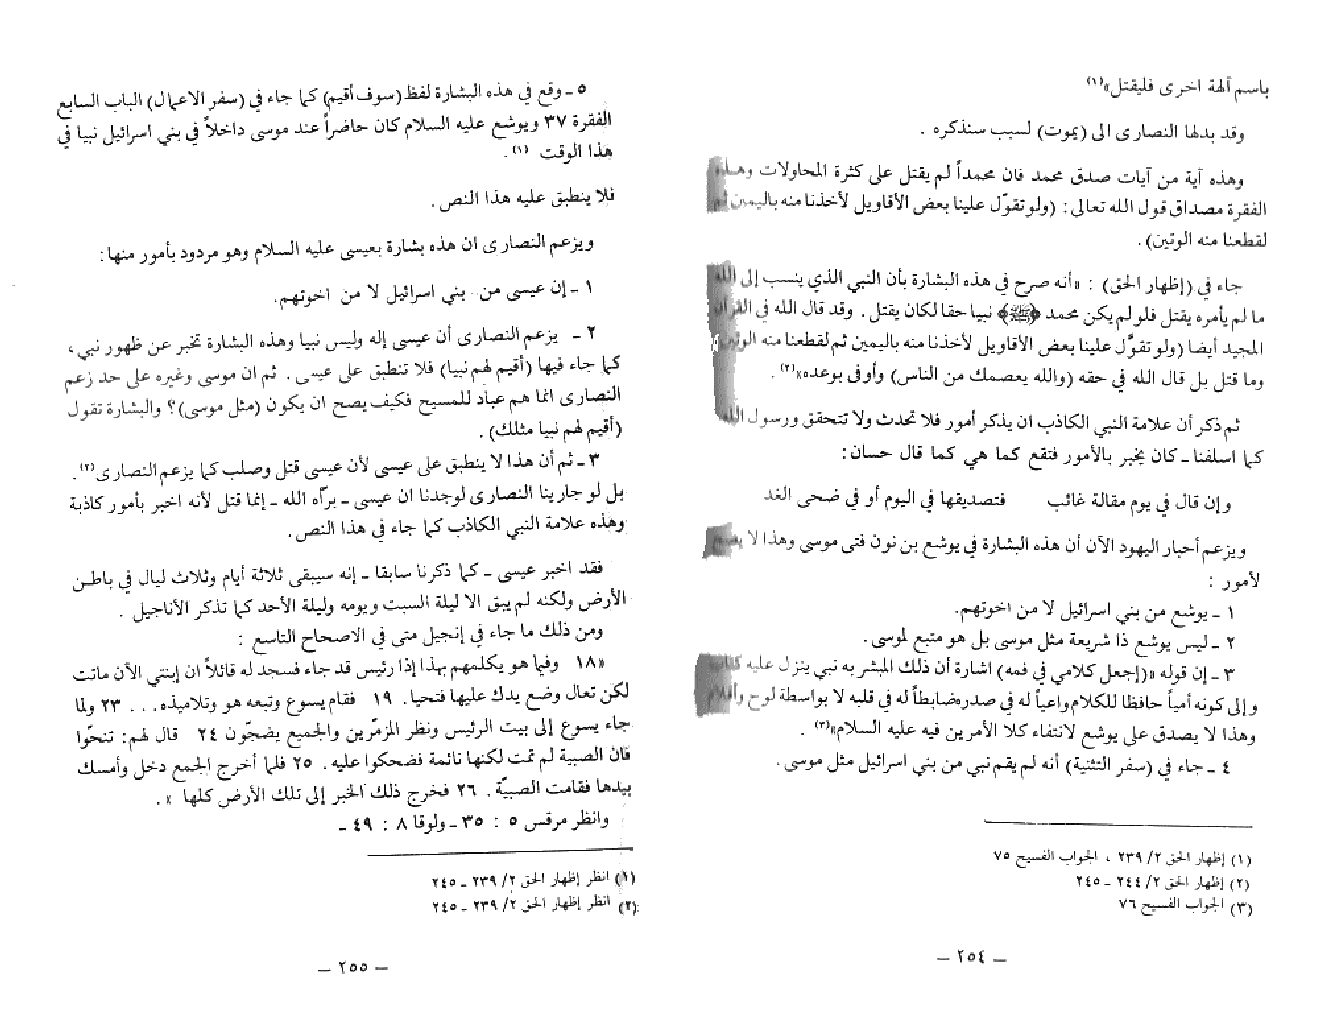 باسم آلهة اخرى فليقتل»(١)
وقد بدلها النصارى الى (يموت) لسبب سنذكره .
وهذه آية من آيات صدق محمد فان محمداً لم يقتل على كثرة المحاولات وهذه
الفقرة مصداق قول الله تعالى : (ولو تقوّل علينا بعض الأقاويل لأخذنا منه باليمين ثم
لقطعنا منه الوتين) .
جاء في (إظهار الحق) : «أنه صرح في هذه البشارة بأن النبي الذي ينسب إلى الله
ما لم يأمره يقتل فلو لم يكن محمد ﴿ﷺ﴾ نبيا حقا لكان يقتل . وقد قال الله في القرآن
المجيد أيضا (ولو تقوّل علينا بعض الأقاويل لأخذنا منه باليمين ثم لقطعنا منه الوتين)
وما قتل بل قال الله في حقه (والله يعصمك من الناس) وأوفى بوعده»(٢) .
ثم ذكر أن علامة النبي الكاذب ان يذكر أمور فلا تحدث ولا تتحقق ورسول الله
كما اسلفنا ـ كان يخبر بالأمور فتقع كما هي كما قال حسان :
وإن قال في يوم مقالة غائب فتصديقها في اليوم أو في ضحى الغد
ويزعم أحبار اليهود الآن أن هذه البشارة في يوشع بن نون فتى موسى وهذا لا يصح
لأمور :
١ ـ يوشع من بني اسرائيل لا من اخوتهم.
٢ ـ ليس يوشع ذا شريعة مثل موسى بل هو متبع لموسى.
٣ ـ إن قوله «(إجعل كلامي في فمه) اشارة أن ذلك المبشر به نبي ينزل عليه كتاب
وإلى كونه أمياً حافظا للكلام واعياً له في صدره ضابطاً له في قلبه لا بواسطة لوح وأقلام
وهذا لا يصدق على يوشع لانتفاء كلا الأمرين فيه عليه السلام»(٣) .
٤ ـ جاء في (سفر التثنية) أنه لم يقم نبي من بني اسرائيل مثل موسى.
(١) إظهار الحق ٢/ ٢٣٩ ، الجواب الفسيح ٧٥
(٢) إظهار الحق ٢/ ٢٤٤ ـ ٢٤٥
(٣) الجواب الفسيح ٧٦
ـ ٢٥٤ ـ
٥ ـ وقع في هذه البشارة لفظ (سوف أقيم) كما جاء في (سفر الاعمال) الباب السابع
الفقرة ٣٧ ويوشع عليه السلام كان حاضراً عند موسى داخلاً في بني اسرائيل نبيا في
هذا الوقت (١).
فلا ينطبق عليه هذا النص .
ويزعم النصارى ان هذه بشارة بعيسى عليه السلام وهو مردود بأمور منها :
١ ـ إن عيسى من بني اسرائيل لا من اخوتهم.
٢ ـ يزعم النصارى أن عيسى إله وليس نبيا وهذه البشارة تخبر عن ظهور نبي ،
كما جاء فيها (أقيم لهم نبيا) فلا تنطبق على عيسى . ثم ان موسى وغيره على حد زعم
النصارى انما هم عباد للمسيح فكيف يصح ان يكون (مثل موسى)؟ والبشارة تقول
(أقيم لهم نبيا مثلك) .
٣ ـ ثم أن هذا لا ينطبق على عيسى لأن عيسى قتل وصلب كما يزعم النصارى(٢).
بل لو جارينا النصارى لوجدنا ان عيسى ـ برّاه الله ـ إنما قتل لأنه اخبر بأمور كاذبة
وهذه علامة النبي الكاذب كما جاء في هذا النص.
فقد اخبر عيسى ـ كما ذكرنا سابقا ـ إنه سيبقى ثلاثة أيام وثلاث ليال في باطن
الأرض ولكنه لم يبق الا ليلة السبت ويومه وليلة الأحد كما تذكر الأناجيل .
ومن ذلك ما جاء في إنجيل متى في الاصحاح التاسع :
«١٨ وفيما هو يكلمهم بهذا إذا رئيس قد جاء فسجد له قائلاً ان إبنتي الآن ماتت
لكن تعال وضع يدك عليها فتحيا. ١٩ فقام يسوع وتبعه هو وتلاميذه... ٢٣ ولما
جاء يسوع إلى بيت الرئيس ونظر المزمّرين والجميع يضجّون ٢٤ قال لهم: تنحّوا
فان الصبية لم تمت لكنها نائمة فضحكوا عليه. ٢٥ فلما أخرج الجمع دخل وأمسك
بيدها فقامت الصبيّة. ٢٦ فخرج ذلك الخبر إلى تلك الأرض كلها » .
وانظر مرقس ٥ : ٣٥ ـ ولوقا ٨ : ٤٩ ـ
(١) انظر إظهار الحق ٢/ ٢٣٩ ـ ٢٤٥
(٢) انظر إظهار الحق ٢/ ٢٣٩ ـ ٢٤٥
ـ ٢٥٥ ـ